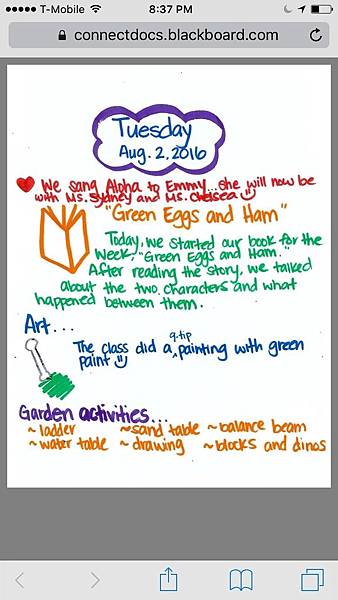 T-Mobile
8:37 PM
connectdocs.blackboard.com
Tuesday
Aug. 2, 2016
We sang Aloha to Emmy...she will now be
with Ms. Sydney and Ms. Chelsea
"Green Eggs and Ham"
Today, we started our book for the
week, "Green Eggs and Ham."
After reading the story, we talked
about the two characters and what
happened between them.
Art...
q-tip
The class did a painting with green
paint
Garden activities...
~ladder ~sand table ~balance beam
~water table ~drawing ~blocks and dinos